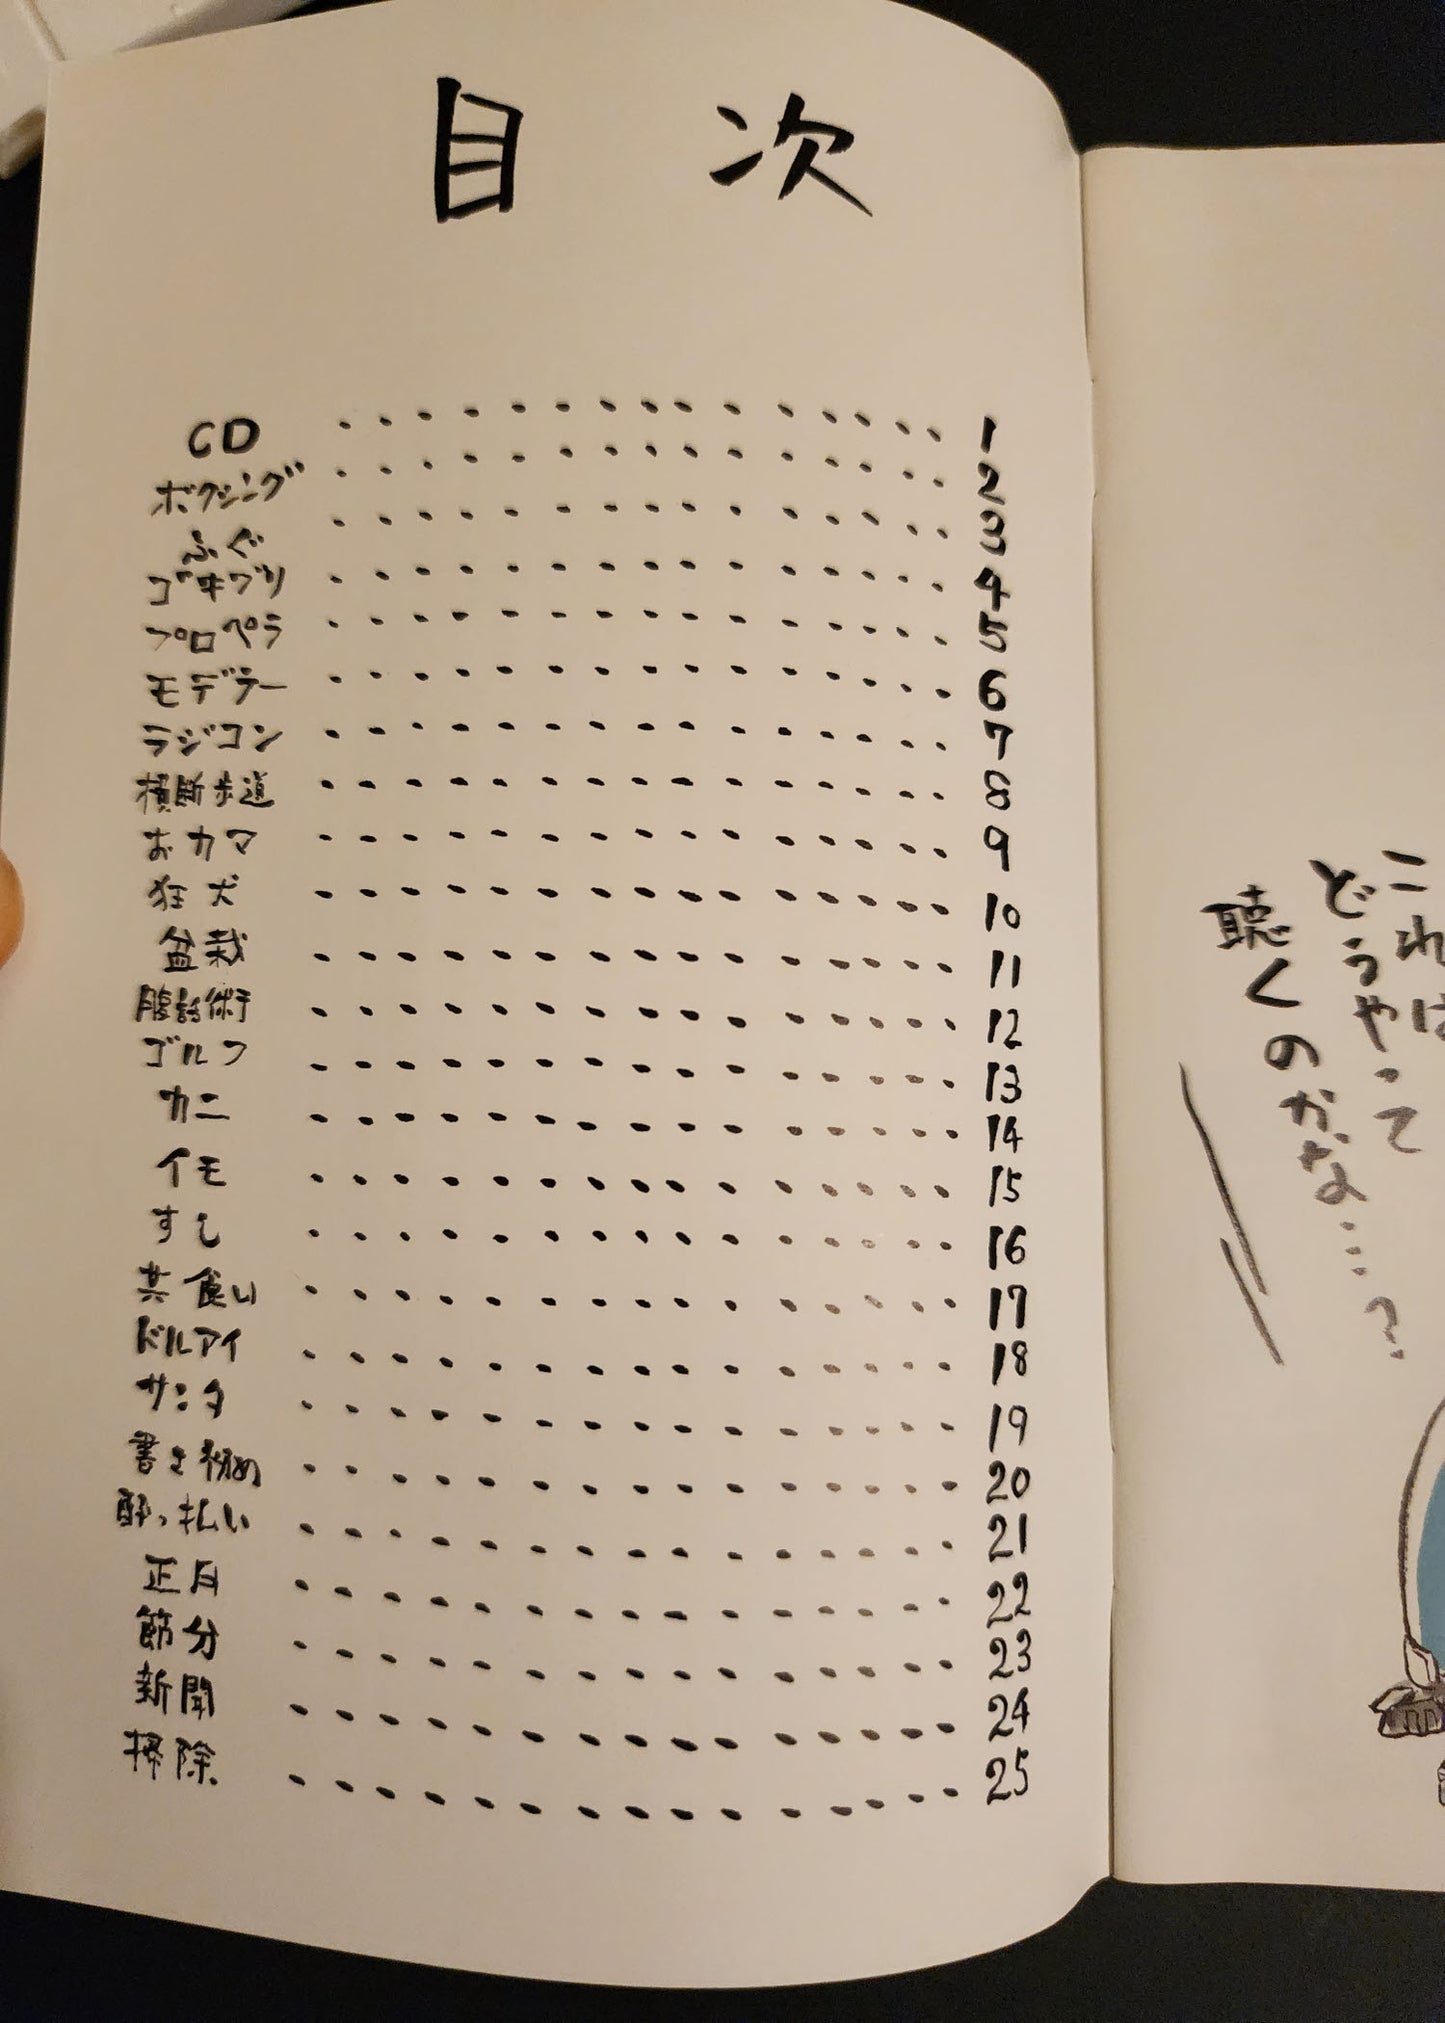 目 次
CD ・・・・・・・・・・・・・・・ 1
ボクシング ・・・・・・・・・・・・・・・ 2
ふぐ ・・・・・・・・・・・・・・・ 3
ゴキブリ ・・・・・・・・・・・・・・・ 4
プロペラ ・・・・・・・・・・・・・・・ 5
モデラー ・・・・・・・・・・・・・・・ 6
ラジコン ・・・・・・・・・・・・・・・ 7
横断歩道 ・・・・・・・・・・・・・・・ 8
おカマ ・・・・・・・・・・・・・・・ 9
狂犬 ・・・・・・・・・・・・・・・ 10
盆栽 ・・・・・・・・・・・・・・・ 11
腹話術 ・・・・・・・・・・・・・・・ 12
ゴルフ ・・・・・・・・・・・・・・・ 13
カニ ・・・・・・・・・・・・・・・ 14
イモ ・・・・・・・・・・・・・・・ 15
すし ・・・・・・・・・・・・・・・ 16
共食い ・・・・・・・・・・・・・・・ 17
ドルアイ ・・・・・・・・・・・・・・・ 18
サンタ ・・・・・・・・・・・・・・・ 19
書き初め ・・・・・・・・・・・・・・・ 20
酔っ払い ・・・・・・・・・・・・・・・ 21
正月 ・・・・・・・・・・・・・・・ 22
節分 ・・・・・・・・・・・・・・・ 23
新聞 ・・・・・・・・・・・・・・・ 24
掃除 ・・・・・・・・・・・・・・・ 25
これは
どうやって
聴くのかな…?